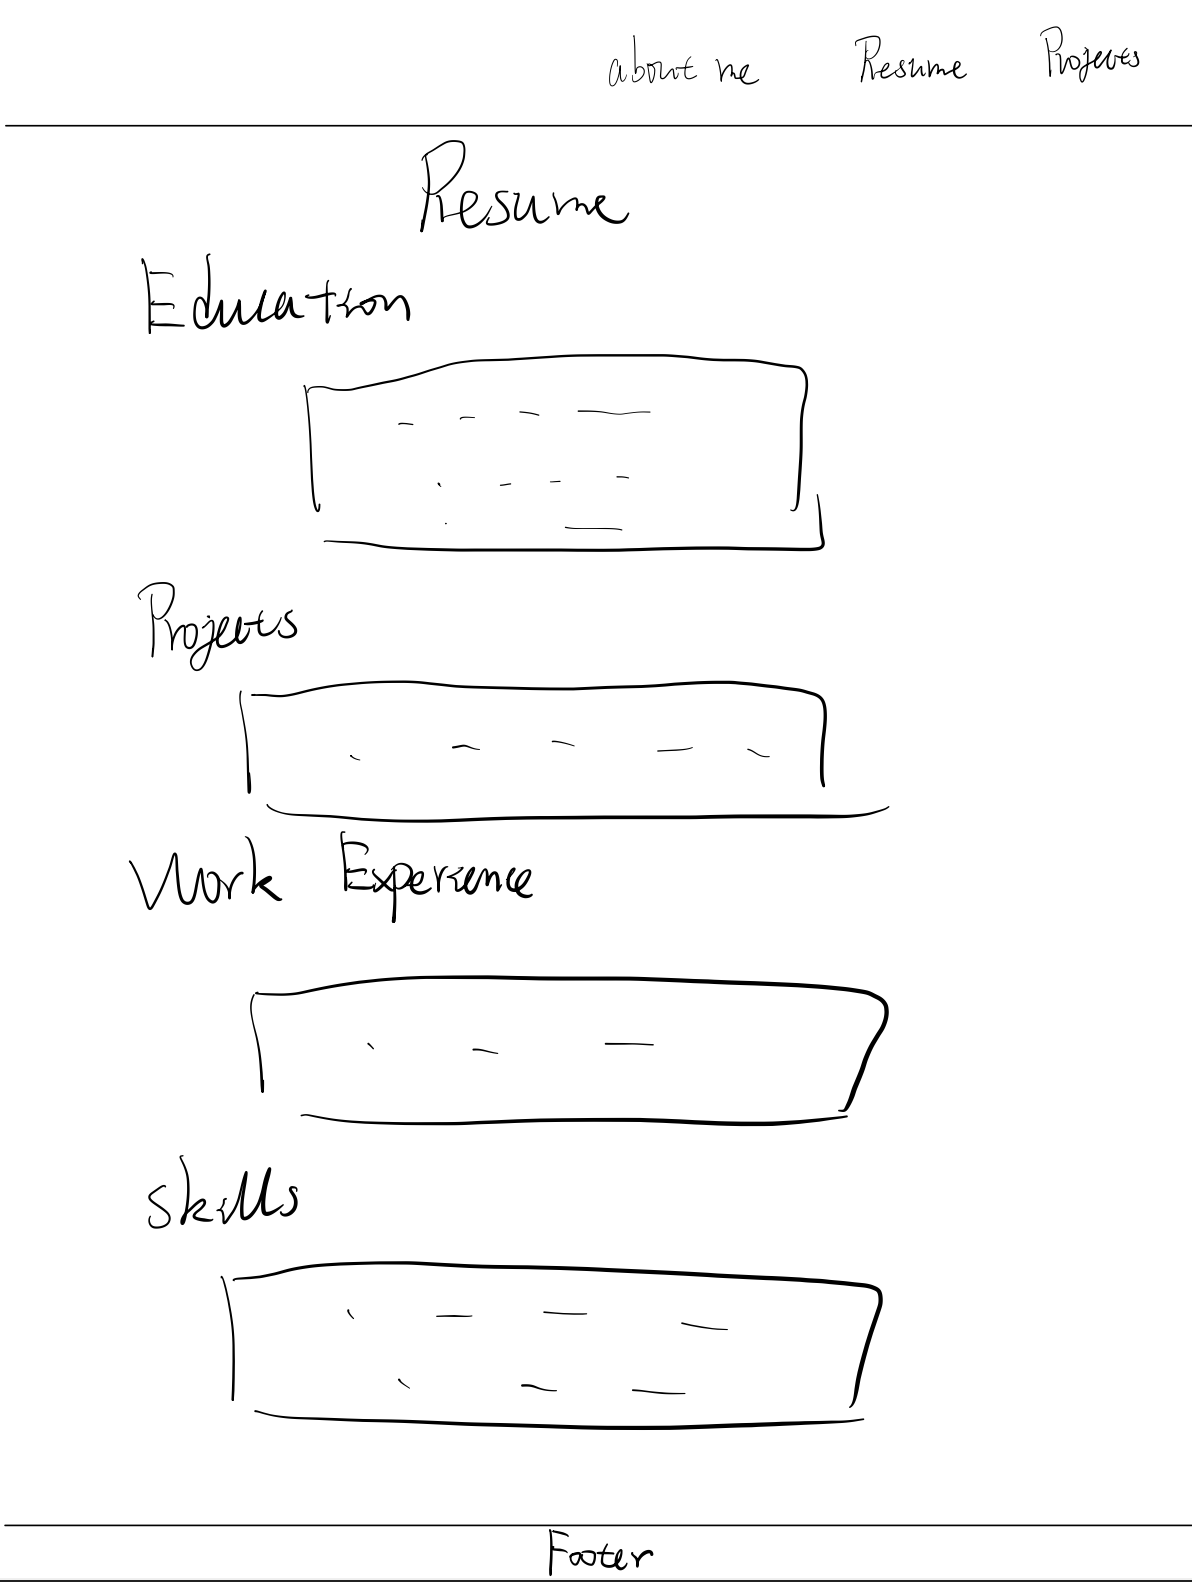 about me Resume Projects
Resume
Education
Projects
Work Experience
Skills
Footer